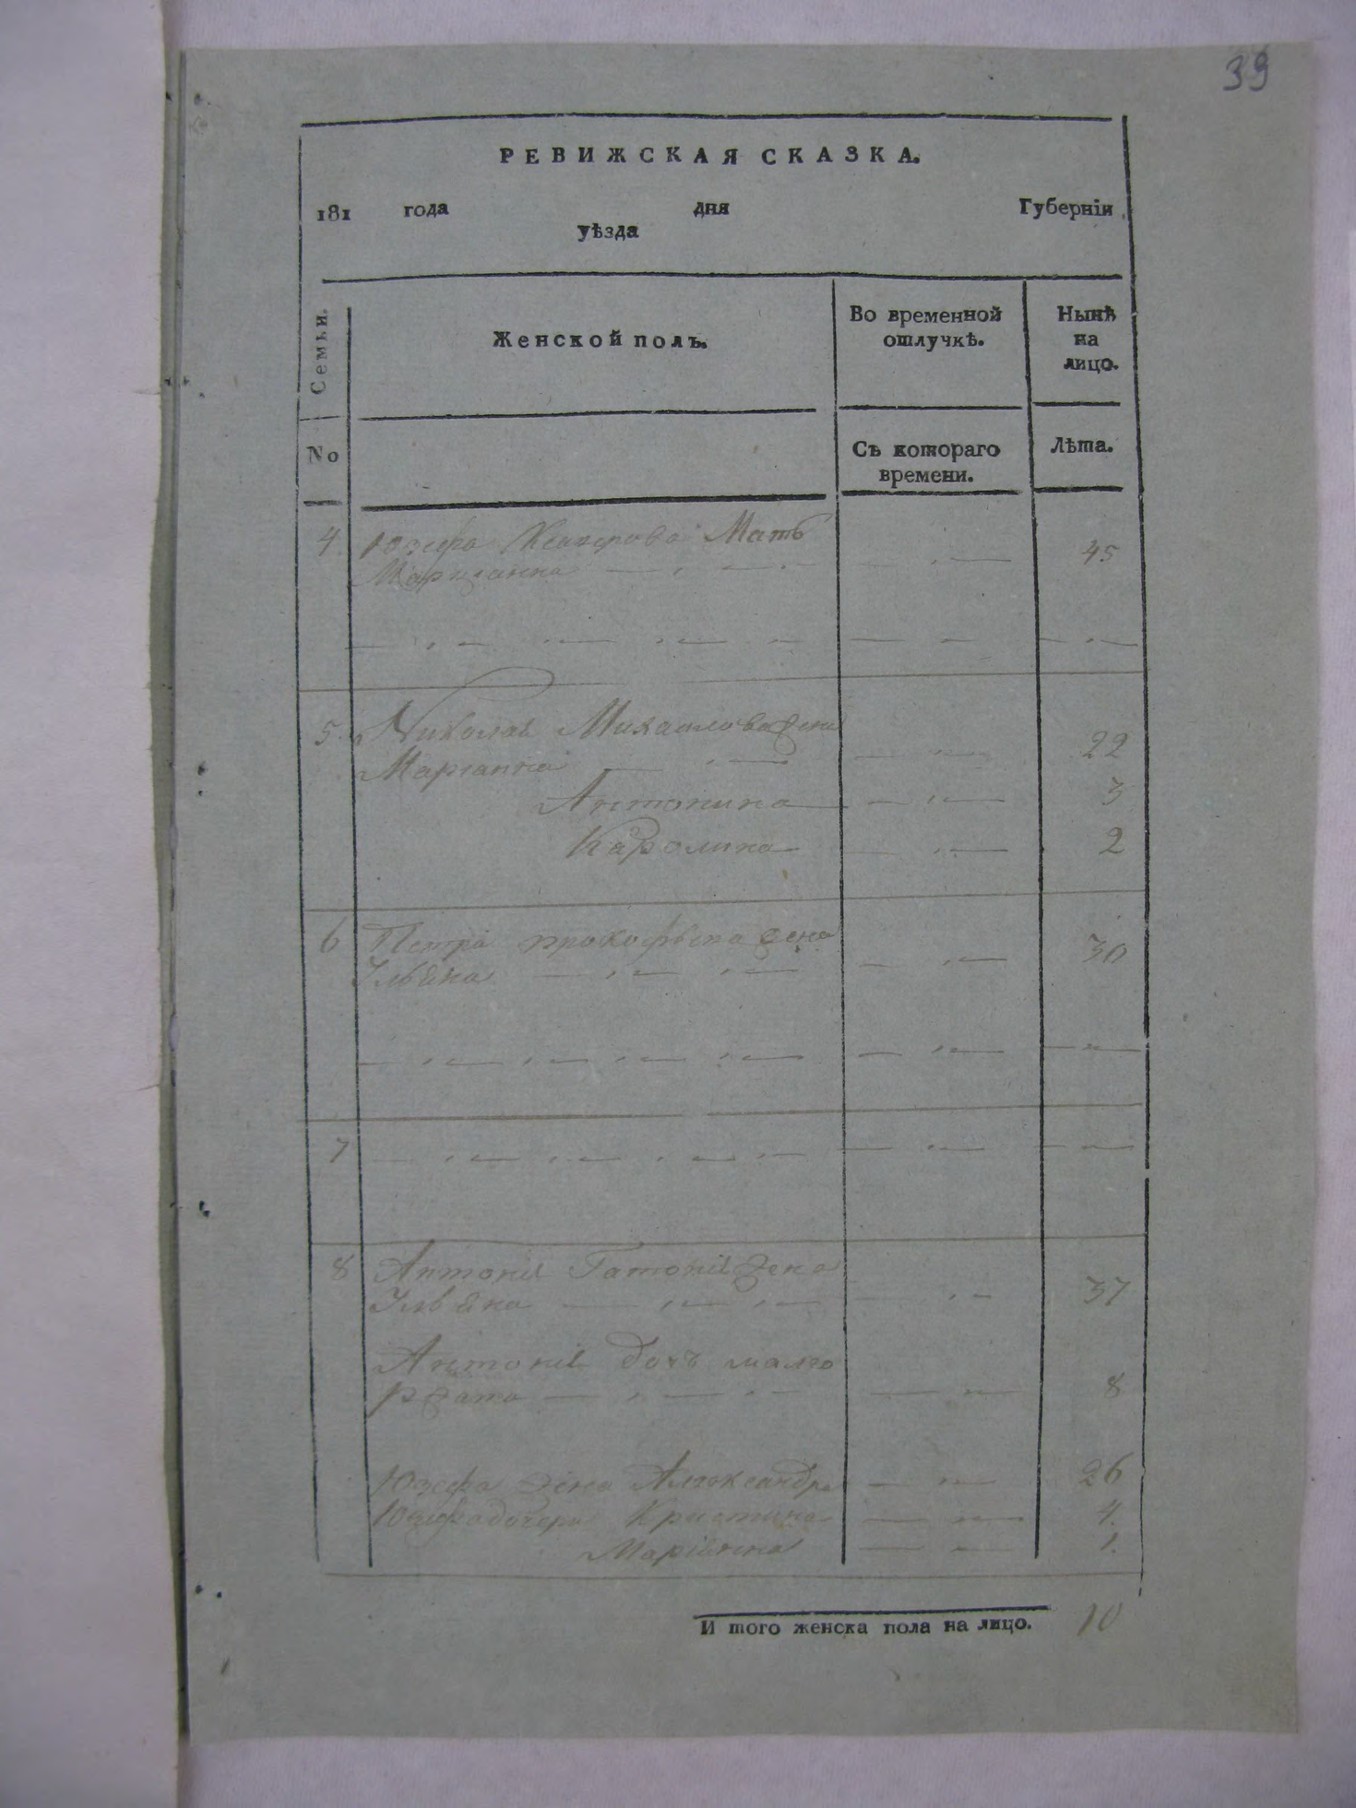 39
РЕВИЖСКАЯ СКАЗКА.
181 года дня Губернїи
уѣзда
Семьи. Женской полъ. Во временной отлучкѣ. Нынѣ на лицо.
No Съ котораго времени. Лѣта.
4. Юзефа Мать
Марианна 45
5. Николая Михаилова жена
Марianna 22
Антонина 3
Каролина 2
6 Петра жена
Ульяна 30
7
8 Антонія жена
Ульяна 37
Антонія дочь малго
рзата 8
Юзефа жена Александра 26
Юзефа дочери Кристина 4.
Маріянна 1.
И того женска пола на лицо. 10